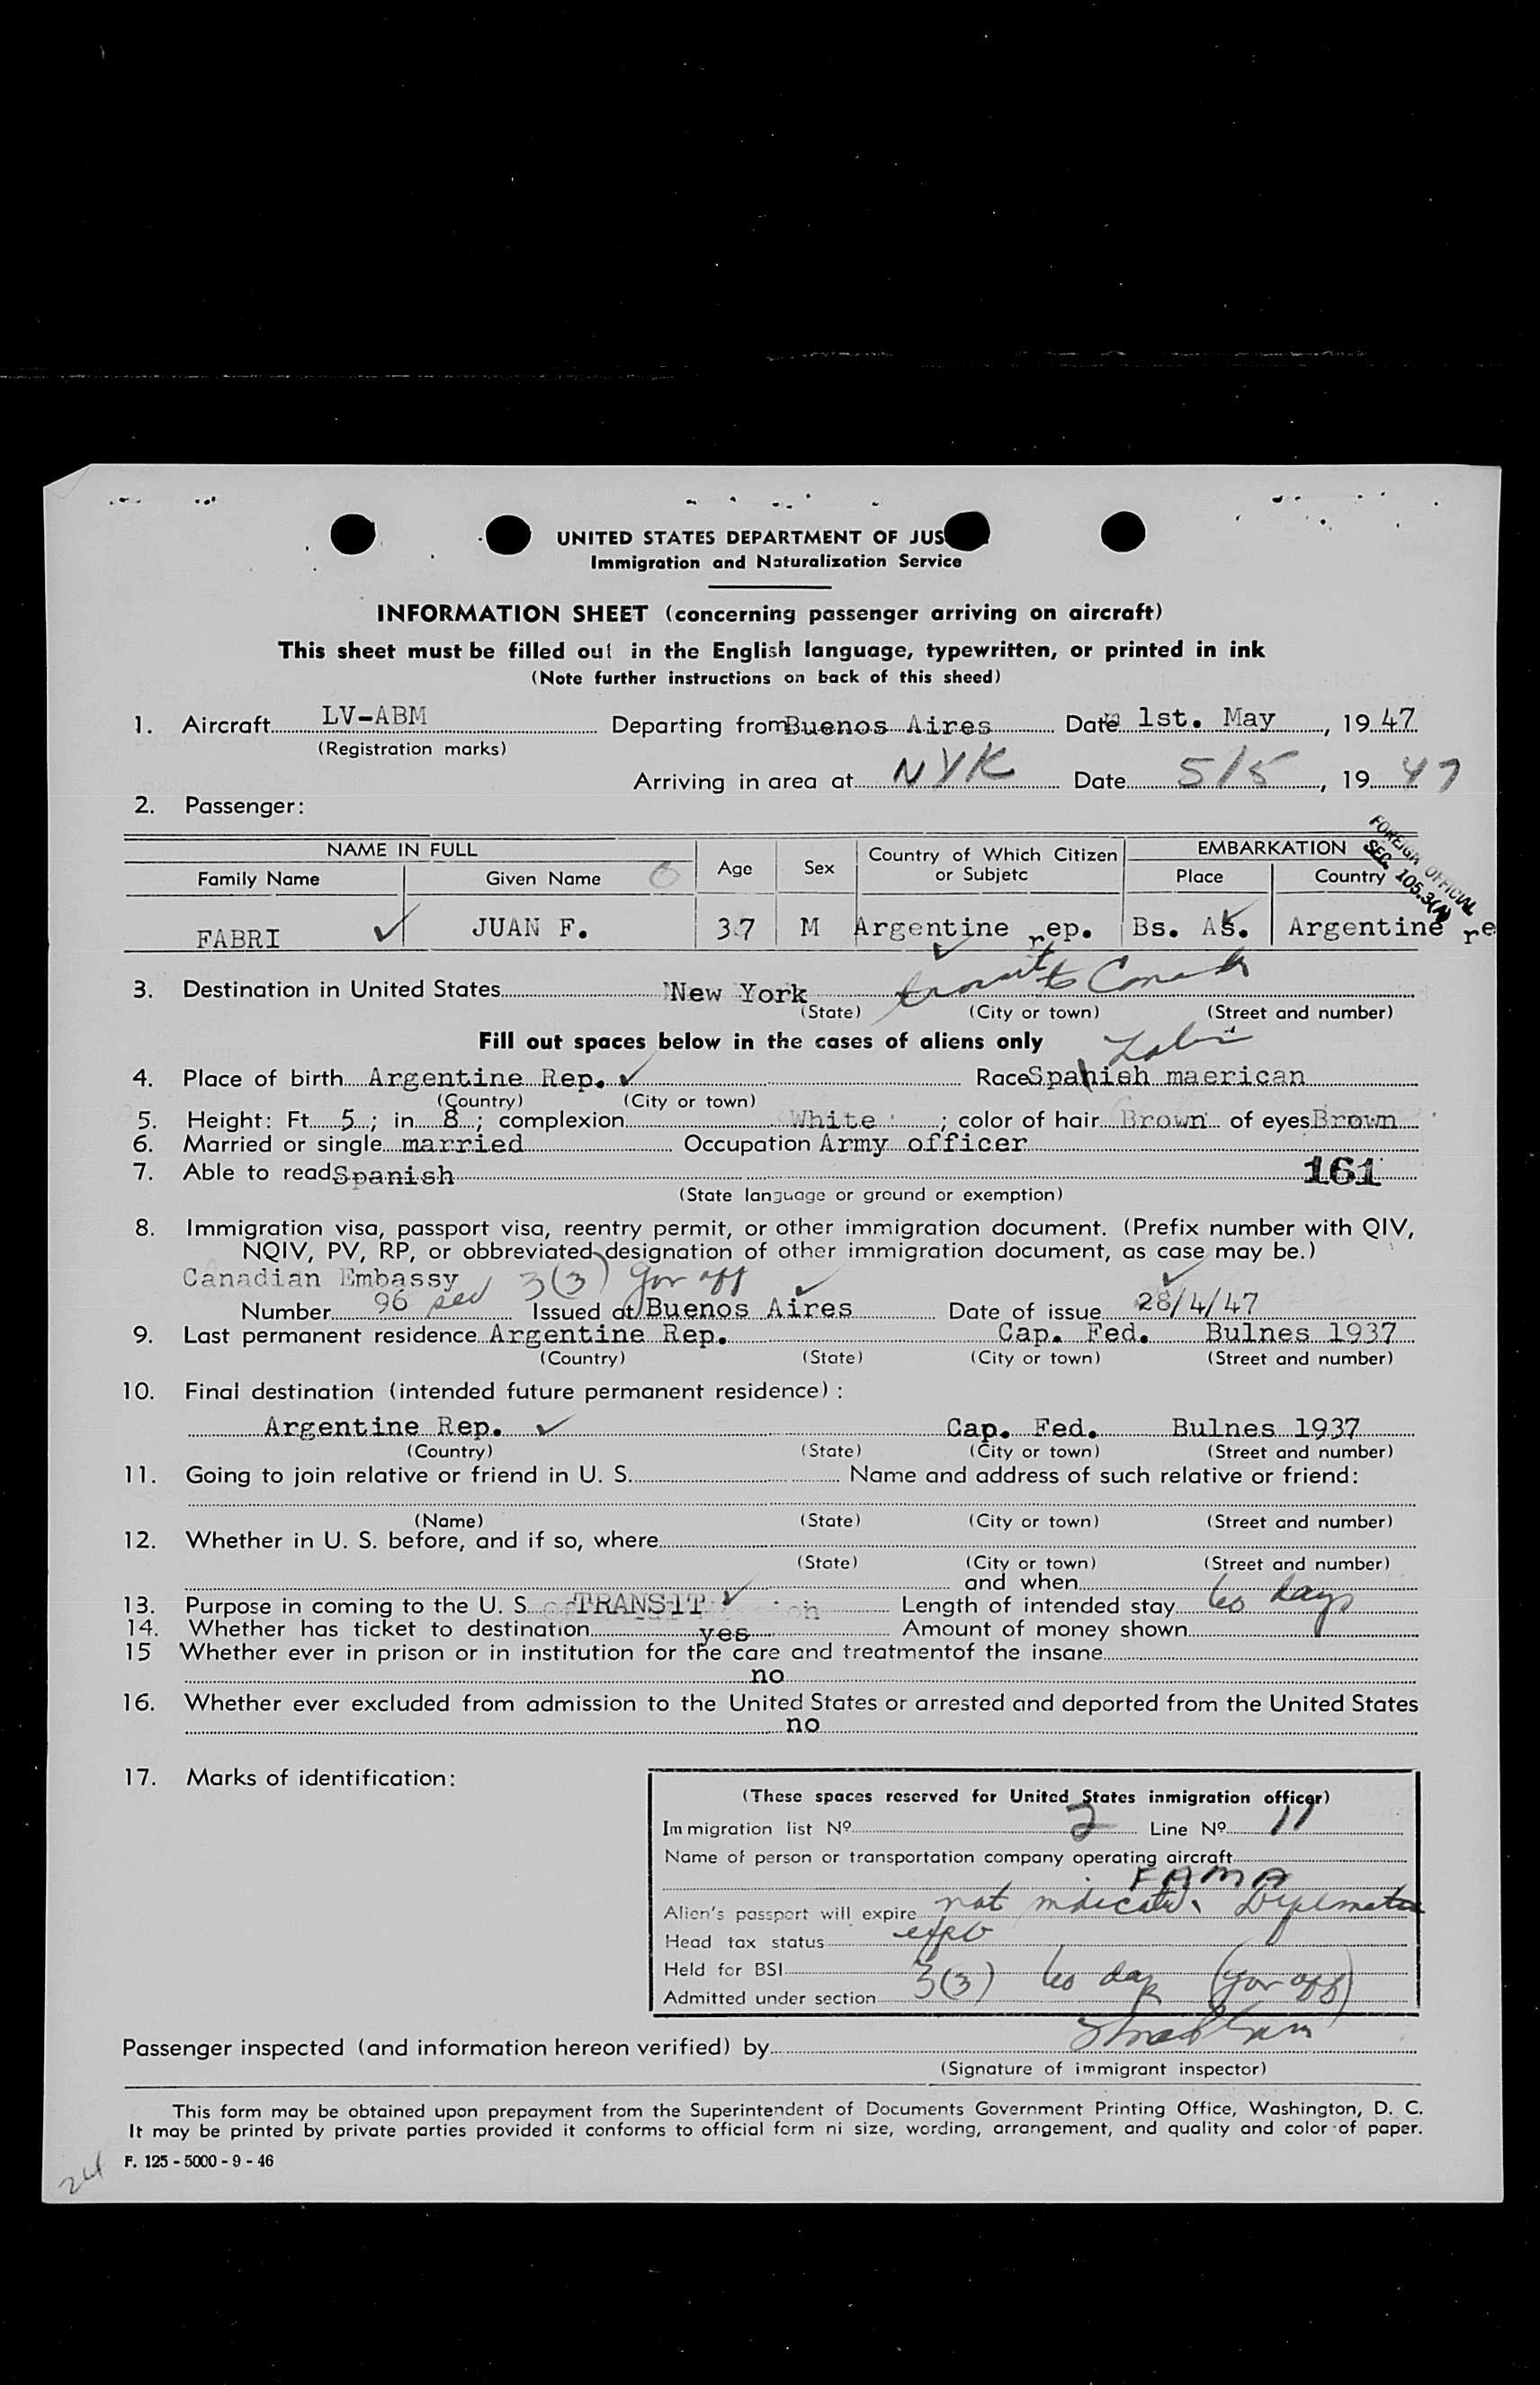 UNITED STATES DEPARTMENT OF JUS
Immigration and Naturalization Service
INFORMATION SHEET (concerning passenger arriving on aircraft)
This sheet must be filled out in the English language, typewritten, or printed in ink
(Note further instructions on back of this sheed)
1. Aircraft LV-ABM Departing from Buenos Aires Date 1st. May, 19 47
(Registration marks)
Arriving in area at NYK Date 5/5, 19 47
2. Passenger:
NAME IN FULL Age Sex Country of Which Citizen or Subjetc EMBARKATION
Family Name Given Name Place Country
FOREIGN OFFICIAL
SEC. 105.3(A)
FABRI JUAN F. 37 M Argentine rep. Bs. As. Argentine re
3. Destination in United States New York transit to Canada
(State) (City or town) (Street and number)
Fill out spaces below in the cases of aliens only
Latin
4. Place of birth Argentine Rep. Race Spanish maerican
(Country) (City or town)
5. Height: Ft. 5; in. 8; complexion White; color of hair Brown of eyes Brown
6. Married or single married Occupation Army officer
7. Able to read Spanish 161
(State language or ground or exemption)
8. Immigration visa, passport visa, reentry permit, or other immigration document. (Prefix number with QIV,
NQIV, PV, RP, or obbreviated designation of other immigration document, as case may be.)
Canadian Embassy 3(3) gov off
Number 96 Issued at Buenos Aires Date of issue 28/4/47
9. Last permanent residence Argentine Rep. Cap. Fed. Bulnes 1937
(Country) (State) (City or town) (Street and number)
10. Final destination (intended future permanent residence):
Argentine Rep. Cap. Fed. Bulnes 1937
(Country) (State) (City or town) (Street and number)
11. Going to join relative or friend in U. S. Name and address of such relative or friend:
(Name) (State) (City or town) (Street and number)
12. Whether in U. S. before, and if so, where
(State) (City or town) (Street and number)
and when
13. Purpose in coming to the U. S. TRANSIT Length of intended stay 60 days
14. Whether has ticket to destination yes Amount of money shown
15 Whether ever in prison or in institution for the care and treatmentof the insane
no
16. Whether ever excluded from admission to the United States or arrested and deported from the United States
no
17. Marks of identification:
(These spaces reserved for United States inmigration officer)
Immigration list Nº 2 Line Nº 11
Name of person or transportation company operating aircraft
FAMA
Alien's passport will expire not indicated Diplomatic
Head tax status
Held for BSI
Admitted under section 3(3) 60 days (gov off)
Passenger inspected (and information hereon verified) by
(Signature of immigrant inspector)
This form may be obtained upon prepayment from the Superintendent of Documents Government Printing Office, Washington, D. C.
It may be printed by private parties provided it conforms to official form ni size, wording, arrangement, and quality and color of paper.
F. 125 - 5000 - 9 - 46